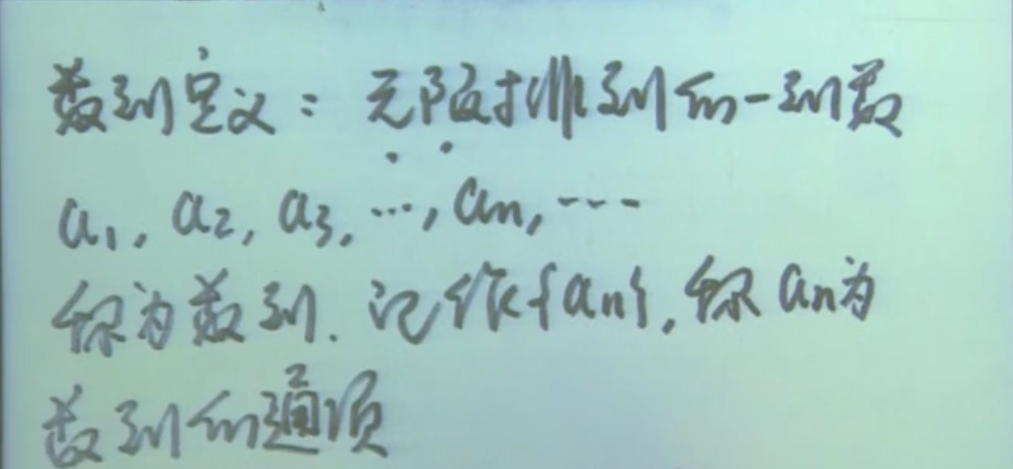 数列定义：无限排列的一列数
a₁, a₂, a₃, …, aₙ, ---
称为数列. 记作{aₙ}, 称aₙ为
数列的通项